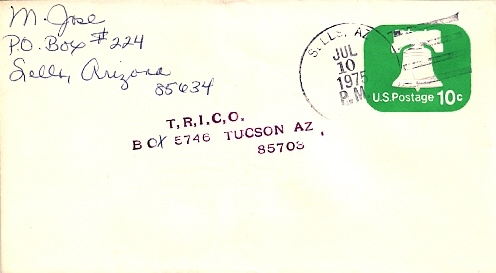 M. Jose
P.O. Box #224
Sells, Arizona
85634
SELLS, AZ
JUL
10
1975
P.M.
U.S. Postage 10c
T,R,I,C,O.
BOX 5746 TUCSON AZ,
85703